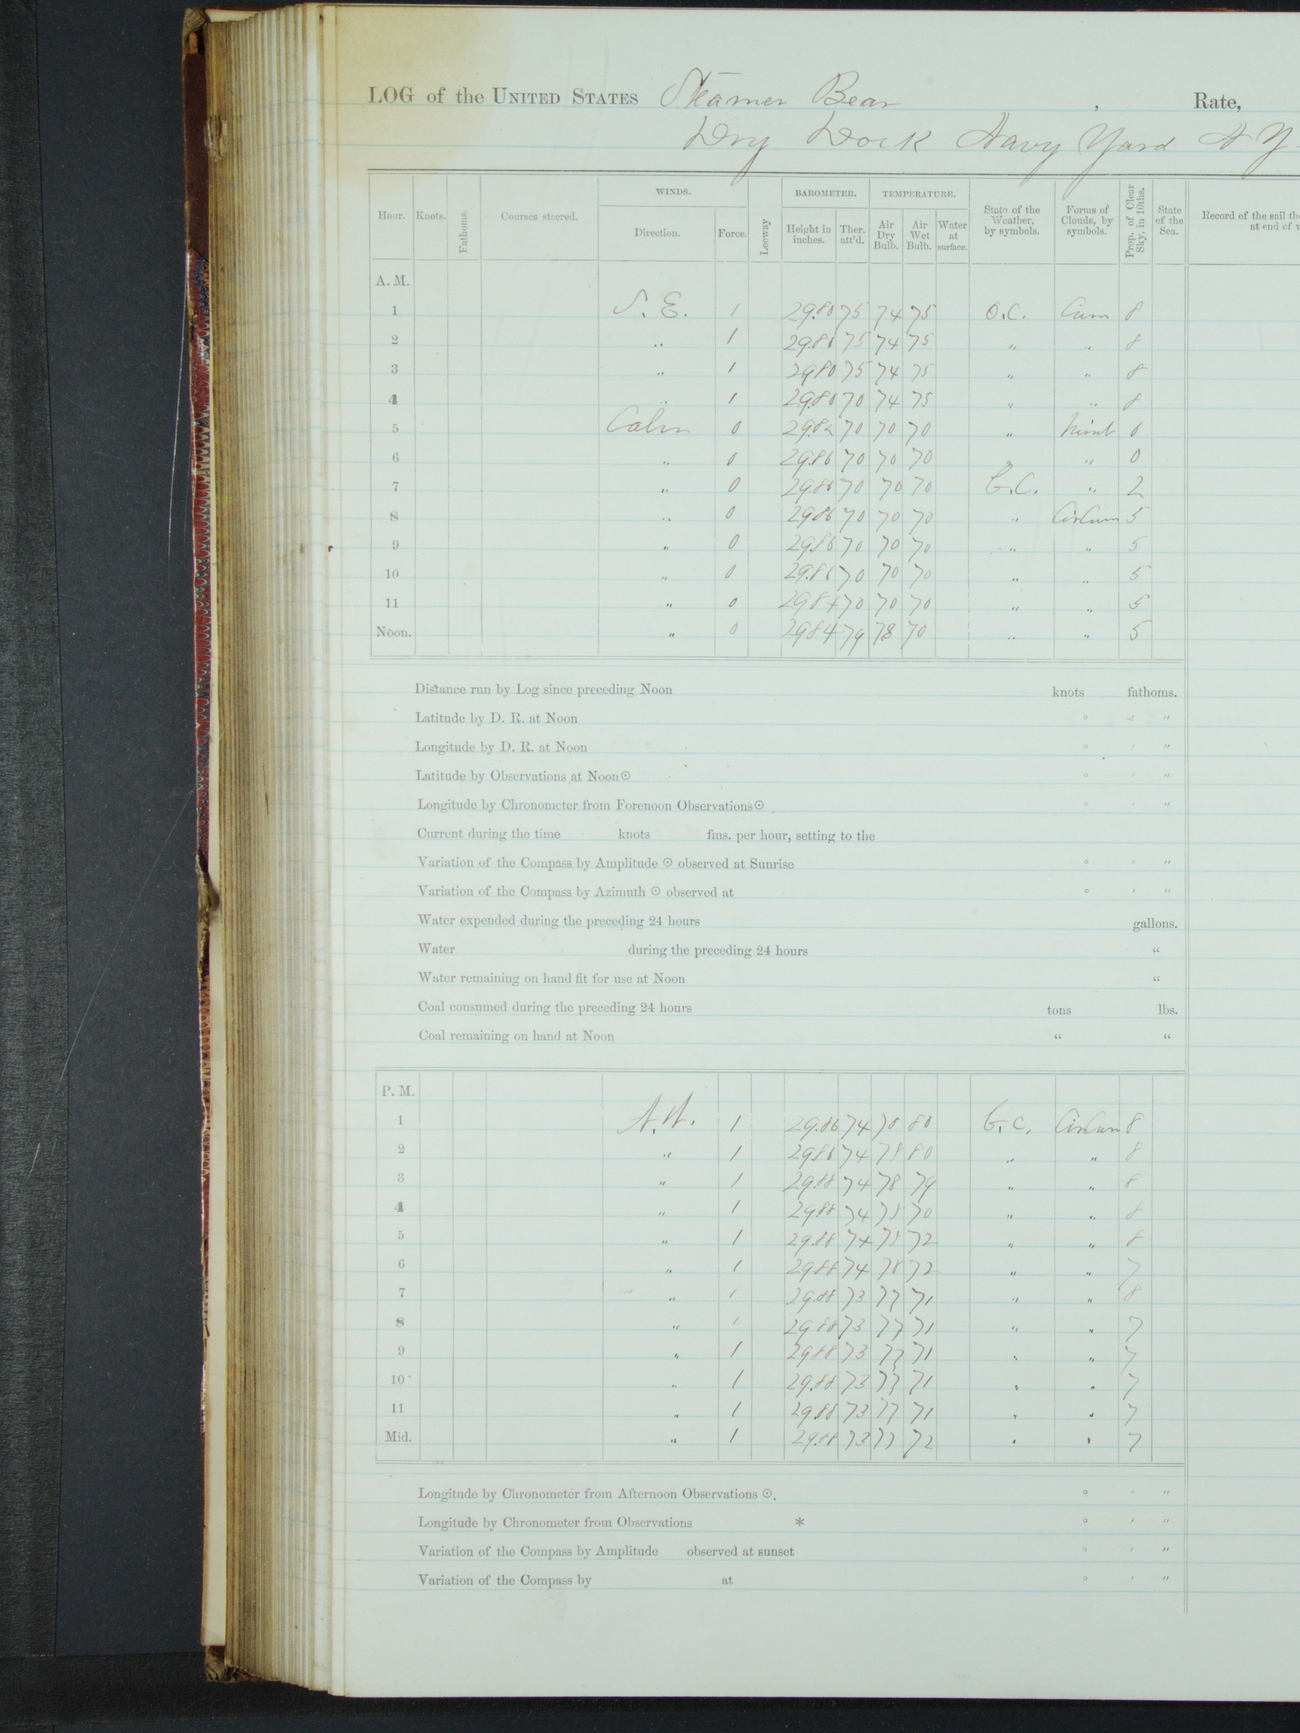 LOG of the UNITED STATES Steamer Bear , Rate,
Dry Dock Navy Yard N.Y.
WINDS. BAROMETER. TEMPERATURE.
Hour. Knots. Fathoms. Courses steered. Direction. Force. Leeway Height in inches. Ther. att'd. Air Dry Bulb. Air Wet Bulb. Water at surface. State of the Weather, by symbols. Forms of Clouds, by symbols. Prop. of Clear Sky, in 10ths. State of the Sea. Record of the sail
A. M.
1 S. E. 1 29.80 75 74 75 O.C. Cum 8
2 " 1 29.80 75 74 75 " " 8
3 " 1 29.80 75 74 75 " " 8
4 " 1 29.80 70 74 75 " " 8
5 Calm 0 29.82 70 70 70 " Nimb
6 " 0 29.86 70 70 70 " " 0
7 " 0 29.86 70 70 70 B.C. " 2
8 " 0 29.86 70 70 70 " CirCum 5
9 " 0 29.86 70 70 70 " " 5
10 " 0 29.86 70 70 70 " " 5
11 " 0 29.84 70 70 70 " " 5
Noon. " 0 29.84 79 78 70 " " 5
Distance run by Log since preceding Noon knots fathoms.
Latitude by D. R. at Noon ° ' "
Longitude by D. R. at Noon ° ' "
Latitude by Observations at Noon ☉ ° ' "
Longitude by Chronometer from Forenoon Observations ☉ ° ' "
Current during the time knots fms. per hour, setting to the
Variation of the Compass by Amplitude ☉ observed at Sunrise ° ' "
Variation of the Compass by Azimuth ☉ observed at ° ' "
Water expended during the preceding 24 hours gallons.
Water during the preceding 24 hours "
Water remaining on hand fit for use at Noon "
Coal consumed during the preceding 24 hours tons lbs.
Coal remaining on hand at Noon " "
P. M.
1 N.W. 1 29.86 74 78 80 B.C. CirCum 8
2 " 1 29.86 74 78 80 " " 8
3 " 1 29.88 74 78 79 " " 8
4 " 1 29.88 74 78 70 " " 8
5 " 1 29.88 74 78 72 " " 8
6 " 1 29.88 74 78 72 " " 7
7 " 1 29.88 73 77 71 " " 8
8 " 1 29.88 73 77 71 " " 7
9 " 1 29.88 73 77 71 " " 7
10 " 1 29.88 73 77 71 " " 7
11 " 1 29.88 73 77 71 " " 7
Mid. " 1 29.88 73 77 72 " " 7
Longitude by Chronometer from Afternoon Observations ☉. ° ' "
Longitude by Chronometer from Observations * ° ' "
Variation of the Compass by Amplitude observed at sunset ° ' "
Variation of the Compass by at ° ' "